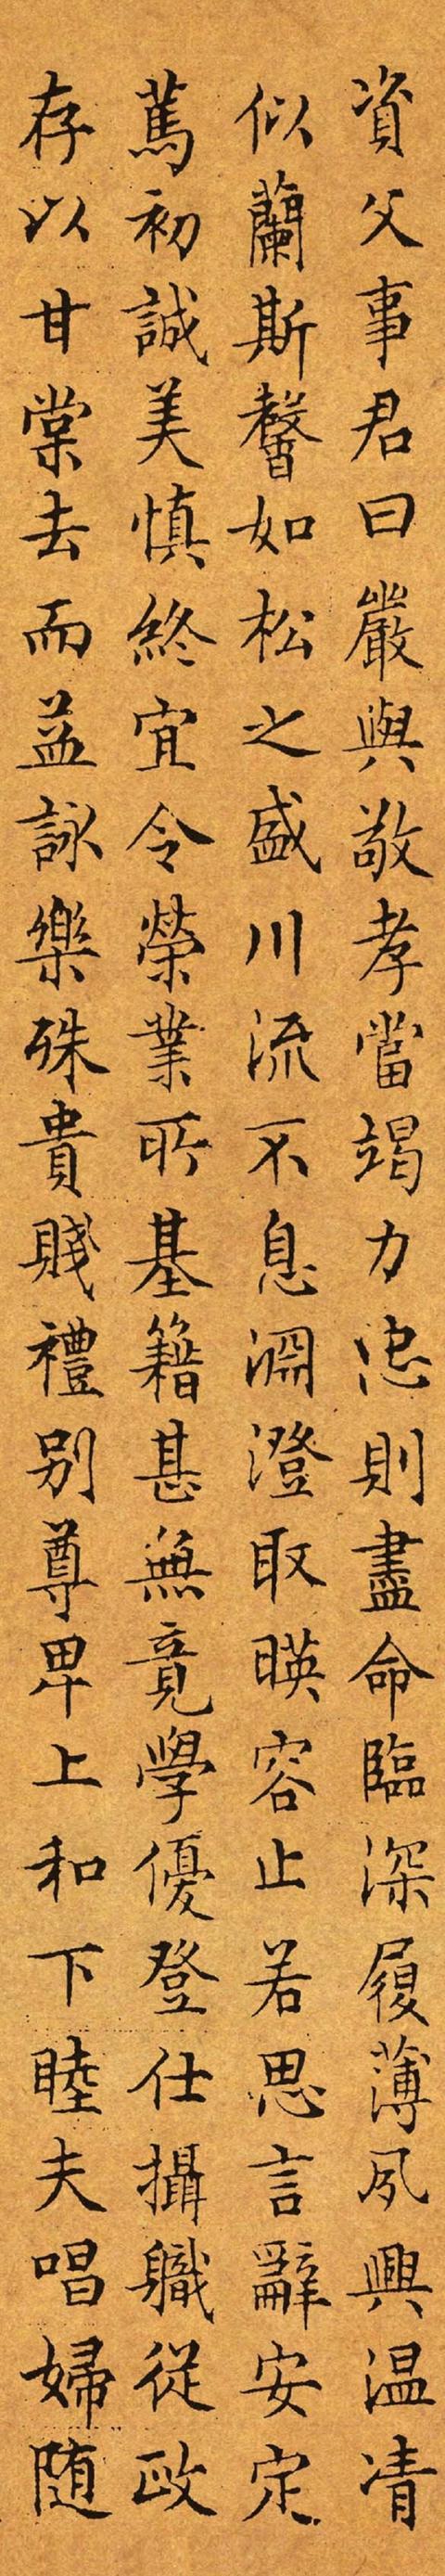 資父事君曰嚴與敬孝當竭力忠則盡命臨深履薄夙興温凊
似蘭斯馨如松之盛川流不息淵澄取暎容止若思言辭安定
篤初誠美慎終宜令榮業所基籍甚無竟學優登仕攝職從政
存以甘棠去而益詠樂殊貴賤禮别尊卑上和下睦夫唱婦随